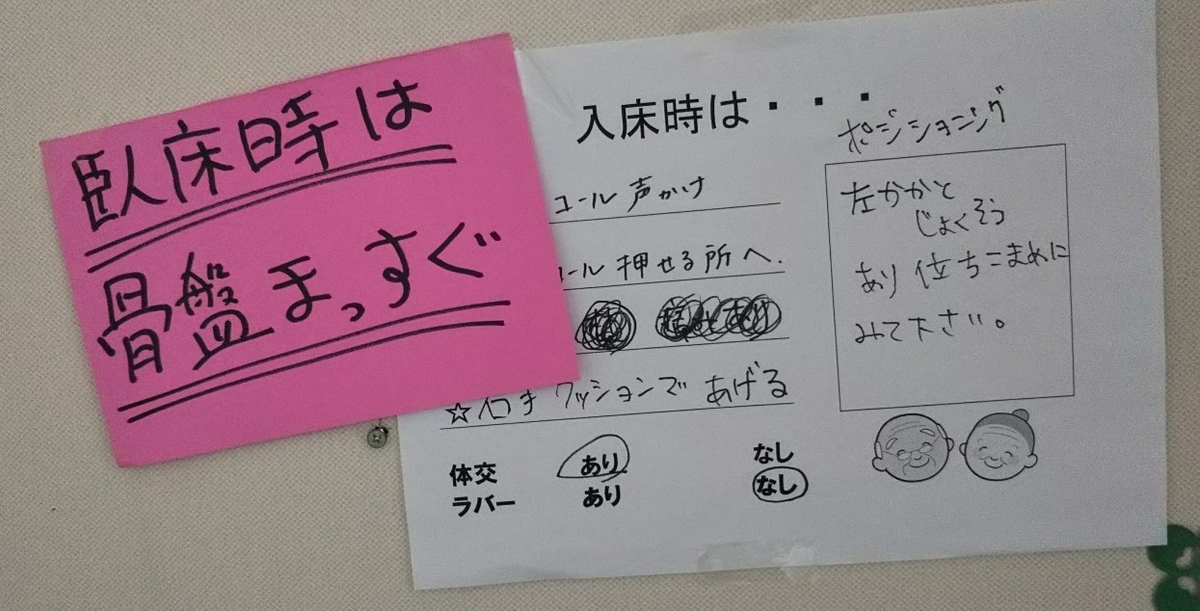 臥床時は
骨盤まっすぐ
入床時は・・・
コール 声かけ
ール 押せる所へ.
クッションで あげる
体交 あり なし
ラバー あり なし
ポジショニング
左かかと
じょくそう
あり 位ちこまめに
みて下さい。